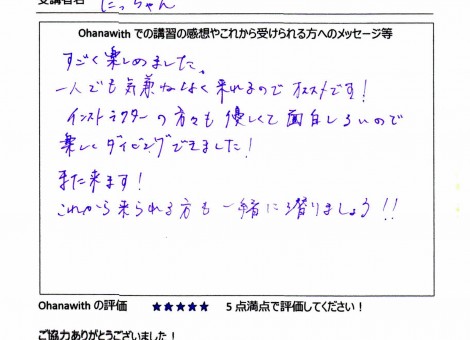 受講者名 にっちゃん
Ohanawith での講習の感想やこれから受けられる方へのメッセージ等
すごく楽しめました。
一人でも気兼ねなく来れるのでオススメです!
インストラクターの方々も優しくて面白しろいので
楽しくダイビングできました!
また来ます!
これから来られる方も一緒に潜りましょう!!
Ohanawith の評価 ★★★★★ 5 点満点で評価してください!
ご協力ありがとうございました!